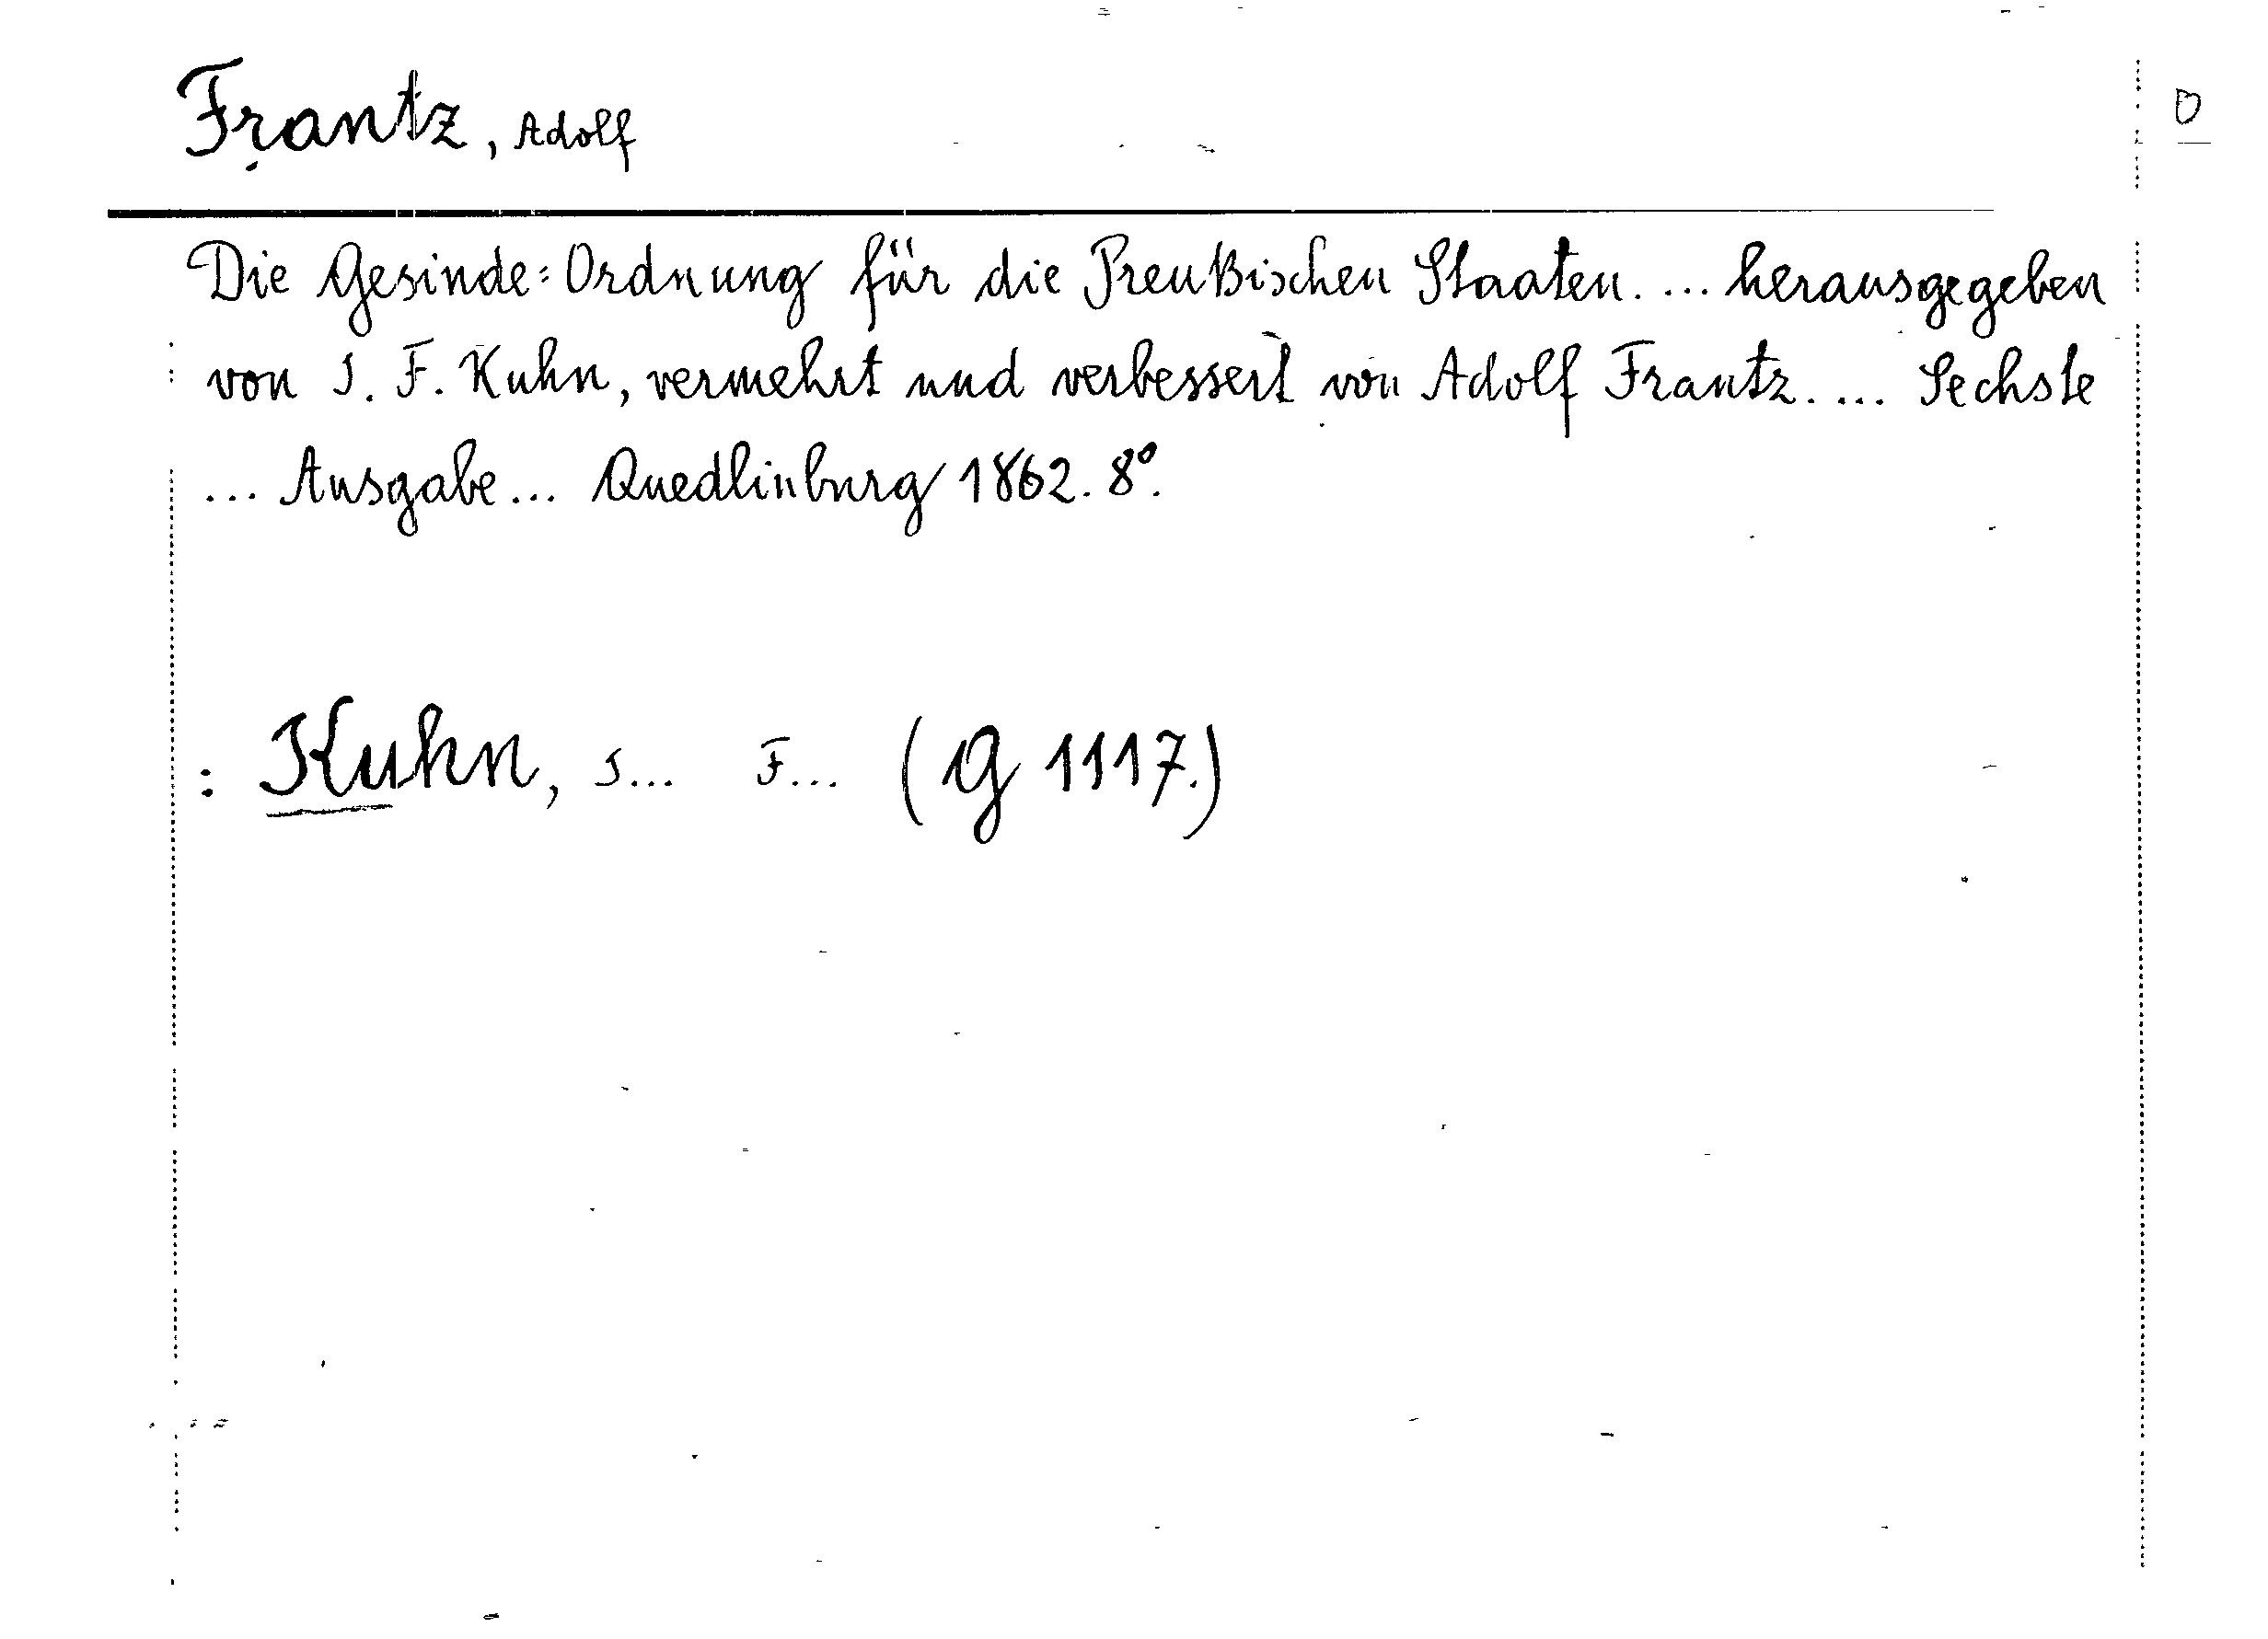 Frantz, Adolf
D
Die Gesinde=Ordnung für die Preußischen Staaten. ... herausgegeben
von J. F. Kuhn, vermehrt und verbessert von Adolf Frantz. ... Sechste
... Ausgabe ... Quedlinburg 1862. 8°.
: Kuhn, J... F... (G 1117.)